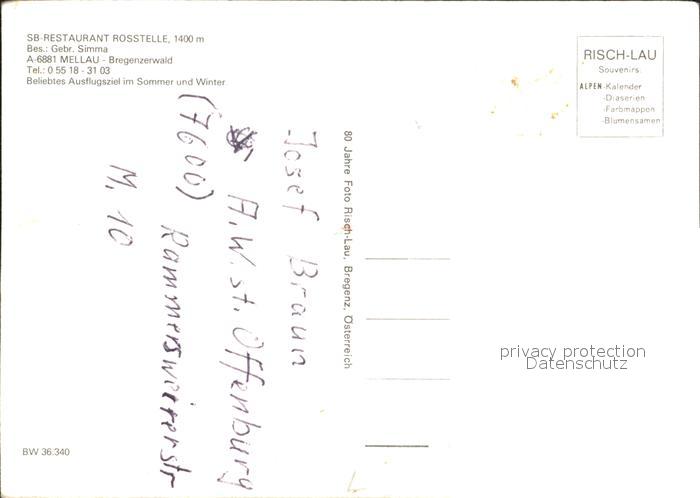 SB-RESTAURANT ROSSTELLE, 1400 m
Bes.: Gebr. Simma
A-6881 MELLAU - Bregenzerwald
Tel.: 0 55 18 - 31 03
Beliebtes Ausflugsziel im Sommer und Winter
RISCH-LAU
Souvenirs:
ALPEN-Kalender
-Diaserien
-Farbmappen
-Blumensamen
80 Jahre Foto Risch-Lau, Bregenz, Österreich
Josef Braun
A.W. st. Offenburg
(7600) Rammersweierstr
M. 10
privacy protection
Datenschutz
BW 36.340